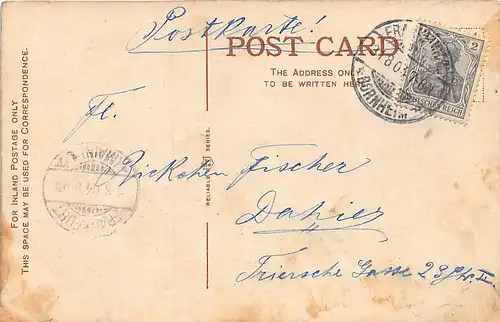 Postkarte!
POST CARD
THE ADDRESS ONLY
TO BE WRITTEN HERE
FOR INLAND POSTAGE ONLY
THIS SPACE MAY BE USED FOR CORRESPONDENCE.
RELIABLE SERIES.
2
BORNHEIM
Fl.
Fischer
Dahier
Triersche Gasse 23